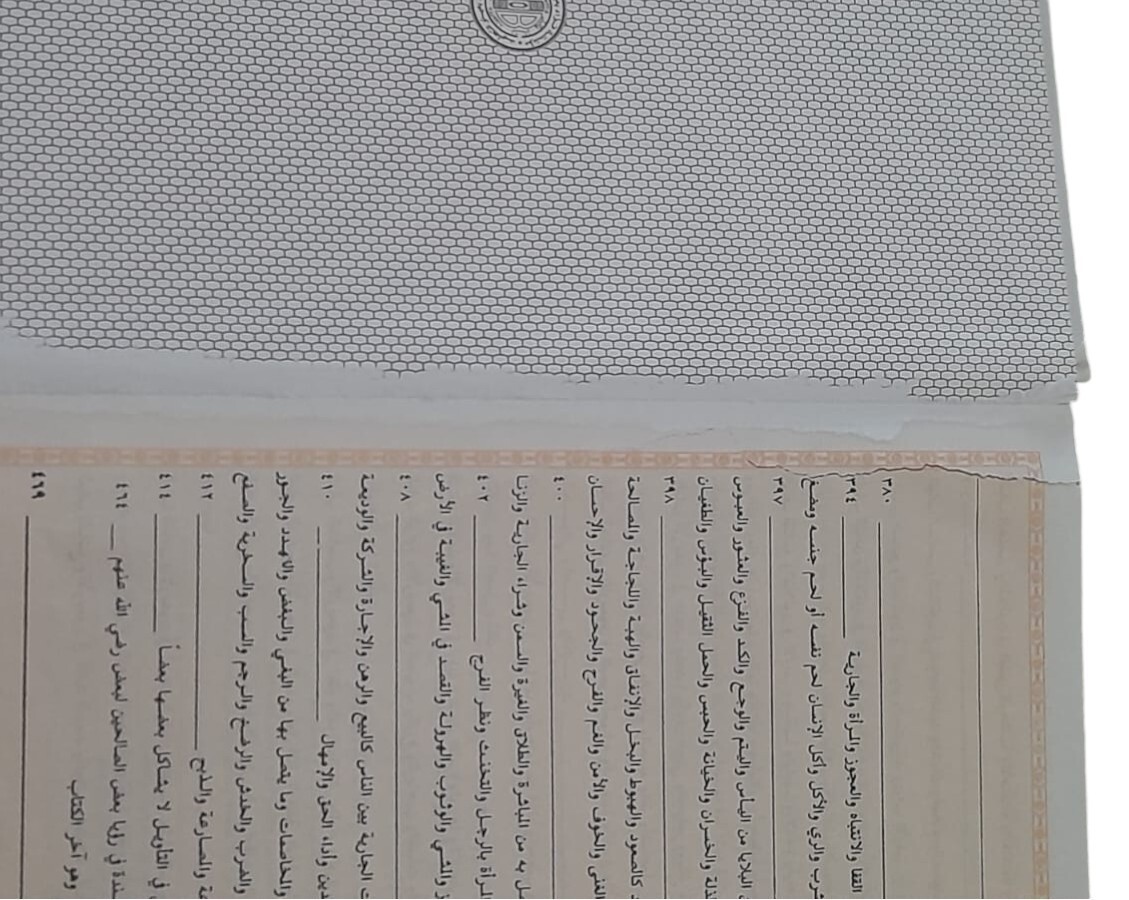 ٣٨٠
القفا والانتباه والعجوز والمرأة والجارية ٣٩٤
شرب والري والأكل وأكل الإنسان لحم نفسه أو لحم جنسه ومضغ
٣٩٧
البلايا من اليأس واليتم والوجع والكد والفزع والعثور والعبوس
لذلة والخسران والخيانة والحبس والحمل الثقيل والبؤس والطغيان
٣٩٨
كالصعود والهبوط والبخل والإنفاق والهبة واللجاجة والمصالحة
الغنى والخوف والأمن والغم والفرح والجحود والإقرار والإحسان
٤٠٠
به من المباشرة والطلاق والغيرة والسمن وشراء الجارية والزنا
لمرأة بالرجل والتخنث ونظر الفرج ٤٠٢
والمشي والوثوب والهرولة والقصد في المشي والغيبة في الأرض
٤٠٨
الجارية بين الناس كالبيع والرهن والإجارة والشركة والوديعة
دين وأداء الحق والإمهال ٤١٠
والخاصمات وما يتصل بها من البغي والبغض والتهدد والجور
والضرب والخدش والرضخ والرجم والسب والسخرية والصفع
والمصارعة والذبح ٤١٢
في التأويل لا يشاكل بعضها بعضاً ٤١٤
ندة في رؤيا بعض الصالحين لبعض رضي الله عنهم ٤٦٤
وهو آخر الكتاب
٤٦٩